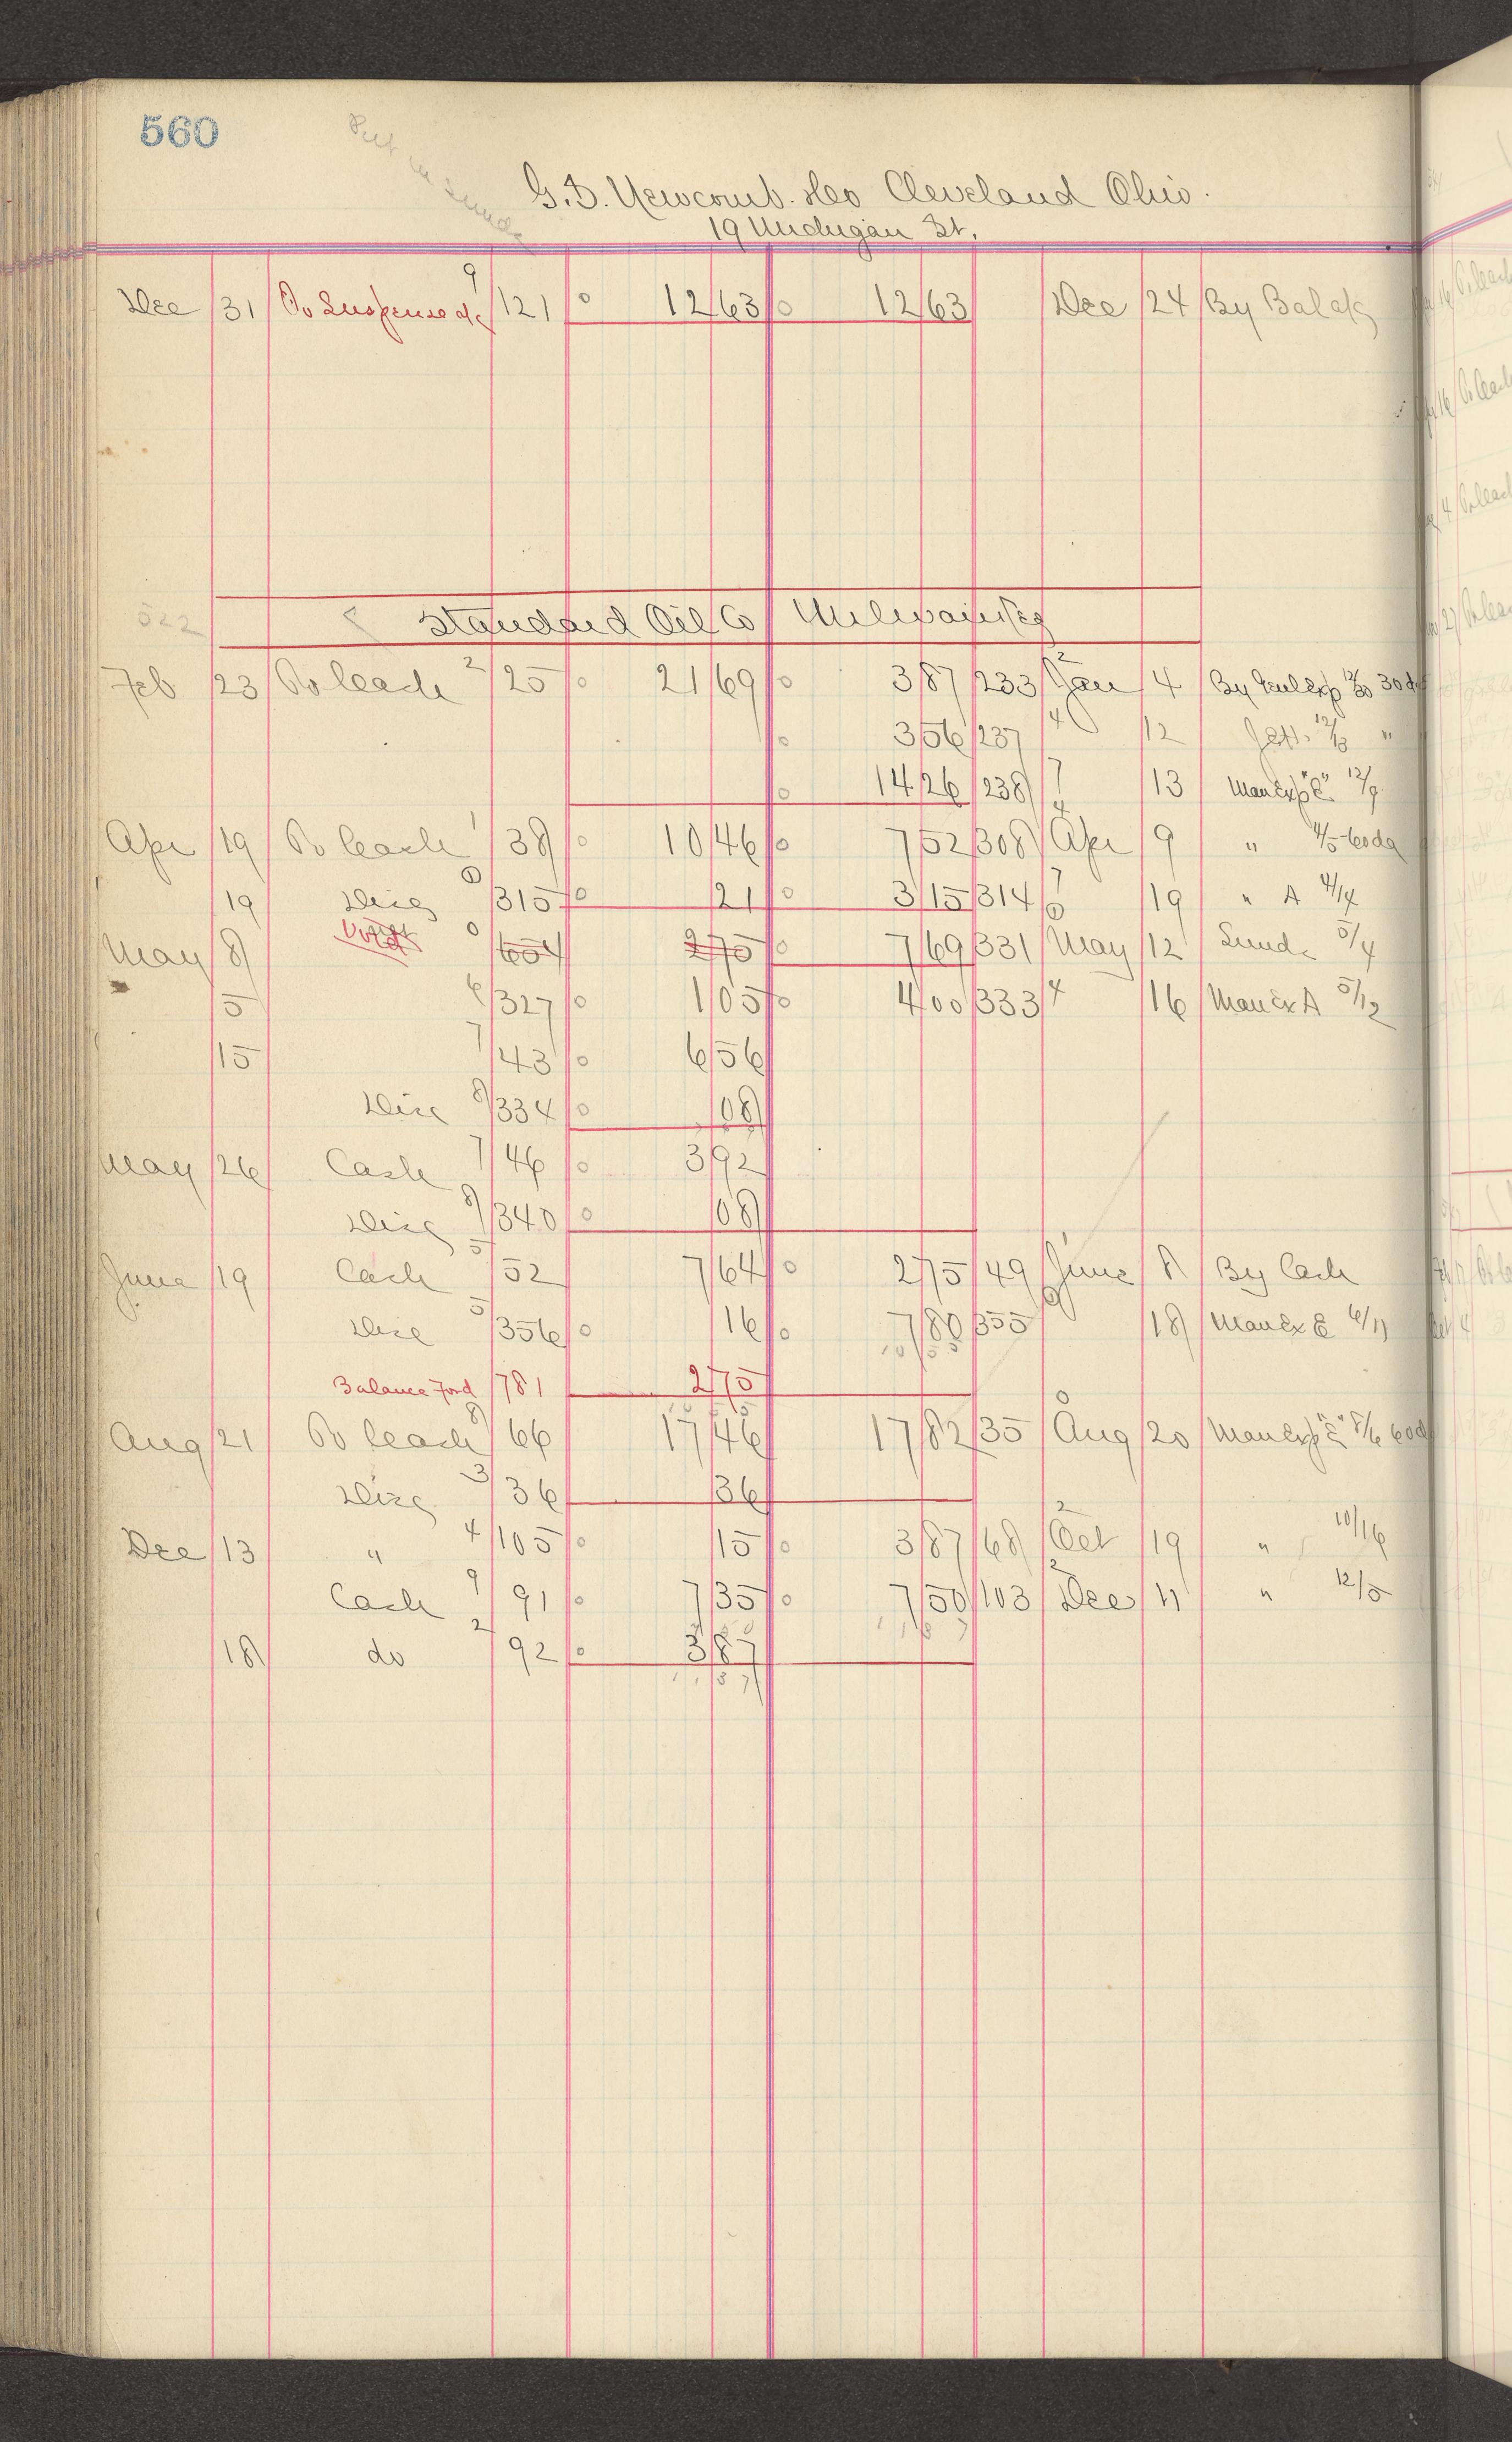 560
Put in Sund
G.B. Newcomb. & Co Cleveland Ohio.
19 Michigan St.
Dec 31 To Suspense a/c 9 121 12 63 12 63 Dec 24 By Bal a/c
522 Standard Oil Co Milwaukee
Feb 23 To Cash 2 25 21 69 3 87 233 2 Jan 4 By 30
3 56 237 4 12 "
14 26 238 7 13 Man Exp "E" 12/9
Apr 19 To Cash 1 38 10 46 7 52 308 4 Apr 9 " 4/5 60 da
19 Disc 315 21 3 15 314 19 " A 4/14
May 8 Void 0 2 75 7 69 331 May 12 Sund. 5/4
5 6 327 1 05 4 00 333 4 16 Man Ex A 5/12
15 7 43 6 56
Disc 8 334 08
May 26 Cash 7 46 3 92
Disc 8 340 08
June 19 Cash 5 52 7 64 2 75 49 June 8 By Cash
Disc 5 356 16 7 80 355 18 Man Ex E 6/11
10 55
Balance Ford 781 2 75
Aug 21 To Cash 8 66 17 46 17 82 35 Aug 20 Man Exp "E" 8/6 60 d
Disc 3 36 36
Dec 13 " 4 105 15 3 87 68 2 Oct 19 " 10/16
Cash 9 91 7 35 7 50 103 2 Dec 11 " 12/5
11 37
18 do 2 92 3 87
11 37